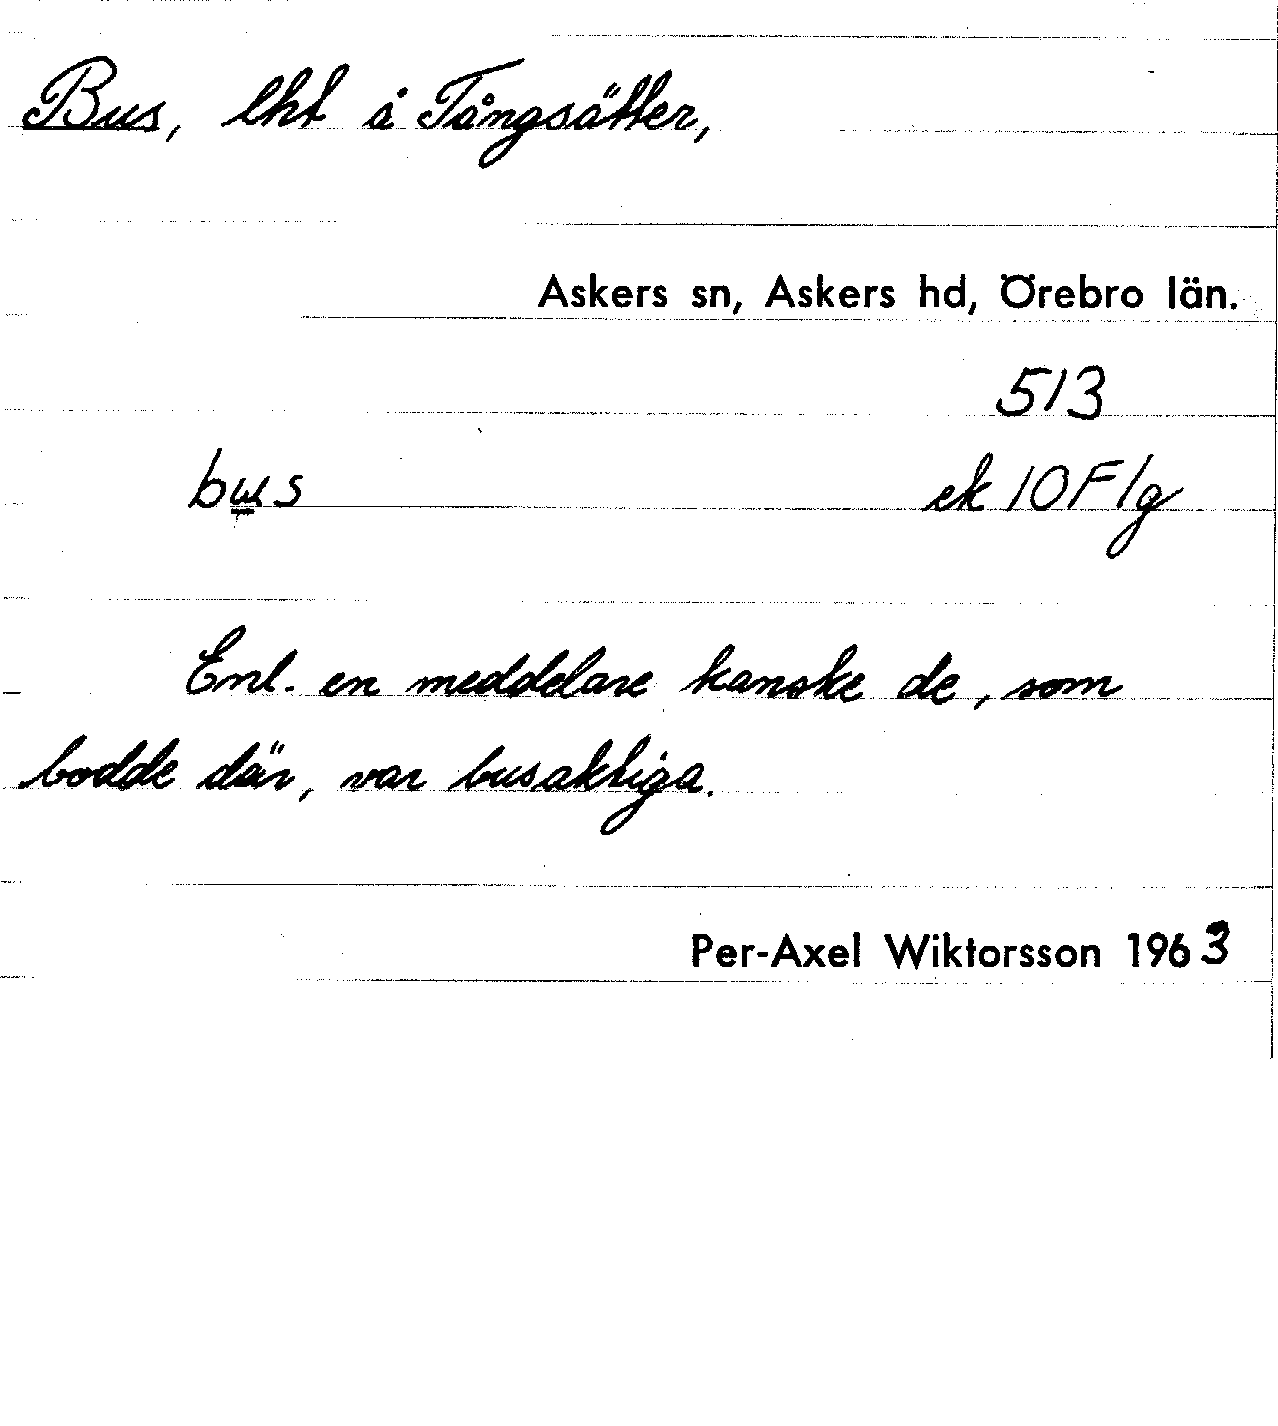 Bus, lht å Tångsätter,
Askers sn, Askers hd, Örebro län.
513
bus ek 10F1g
Enl. en meddelare kanske de, som
bodde där, var busaktiga.
Per-Axel Wiktorsson 1963